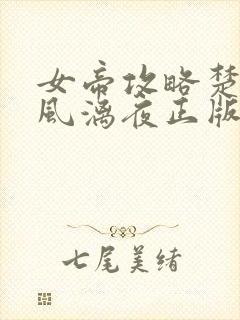 女帝攻略楚
风漓夜正版
七尾美绪